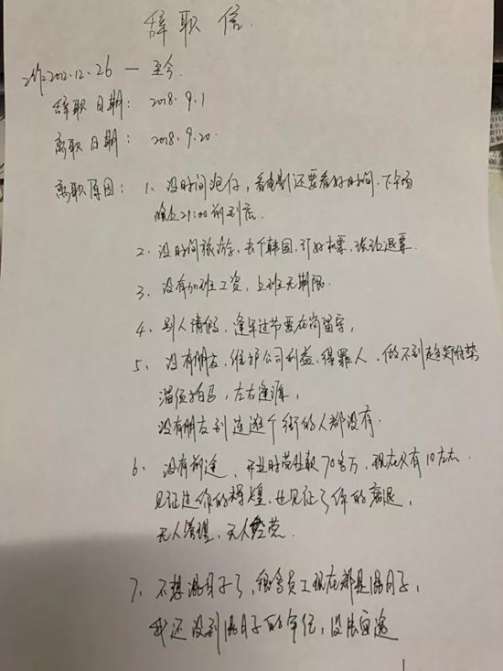 辞职信
工作2012.12.26 — 至今
辞职日期: 2018.9.1
离职日期: 2018.9.20
离职原因: 1、没时间泡仔,看电影还要看好时间,下午场
晚上21:00前到店.
2、没时间旅游,去个韩国,订好机票,被迫退票.
3、没有加班工资,上班无期限.
4、别人请假,逢年过节要在岗留守,
5、没有朋友,维护公司利益,得罪人,做不到
溜须拍马,左右逢源,
没有朋友到连逛个街的人都没有.
6、没有前途,开业时营业额70多万,现在只有10左右.
见证过你的辉煌,也见证了你的衰退,
无人管理,无人经营.
7、不想混日子了,很多员工现在都是混日子,
我还没到混日子的年纪,没法逍遥